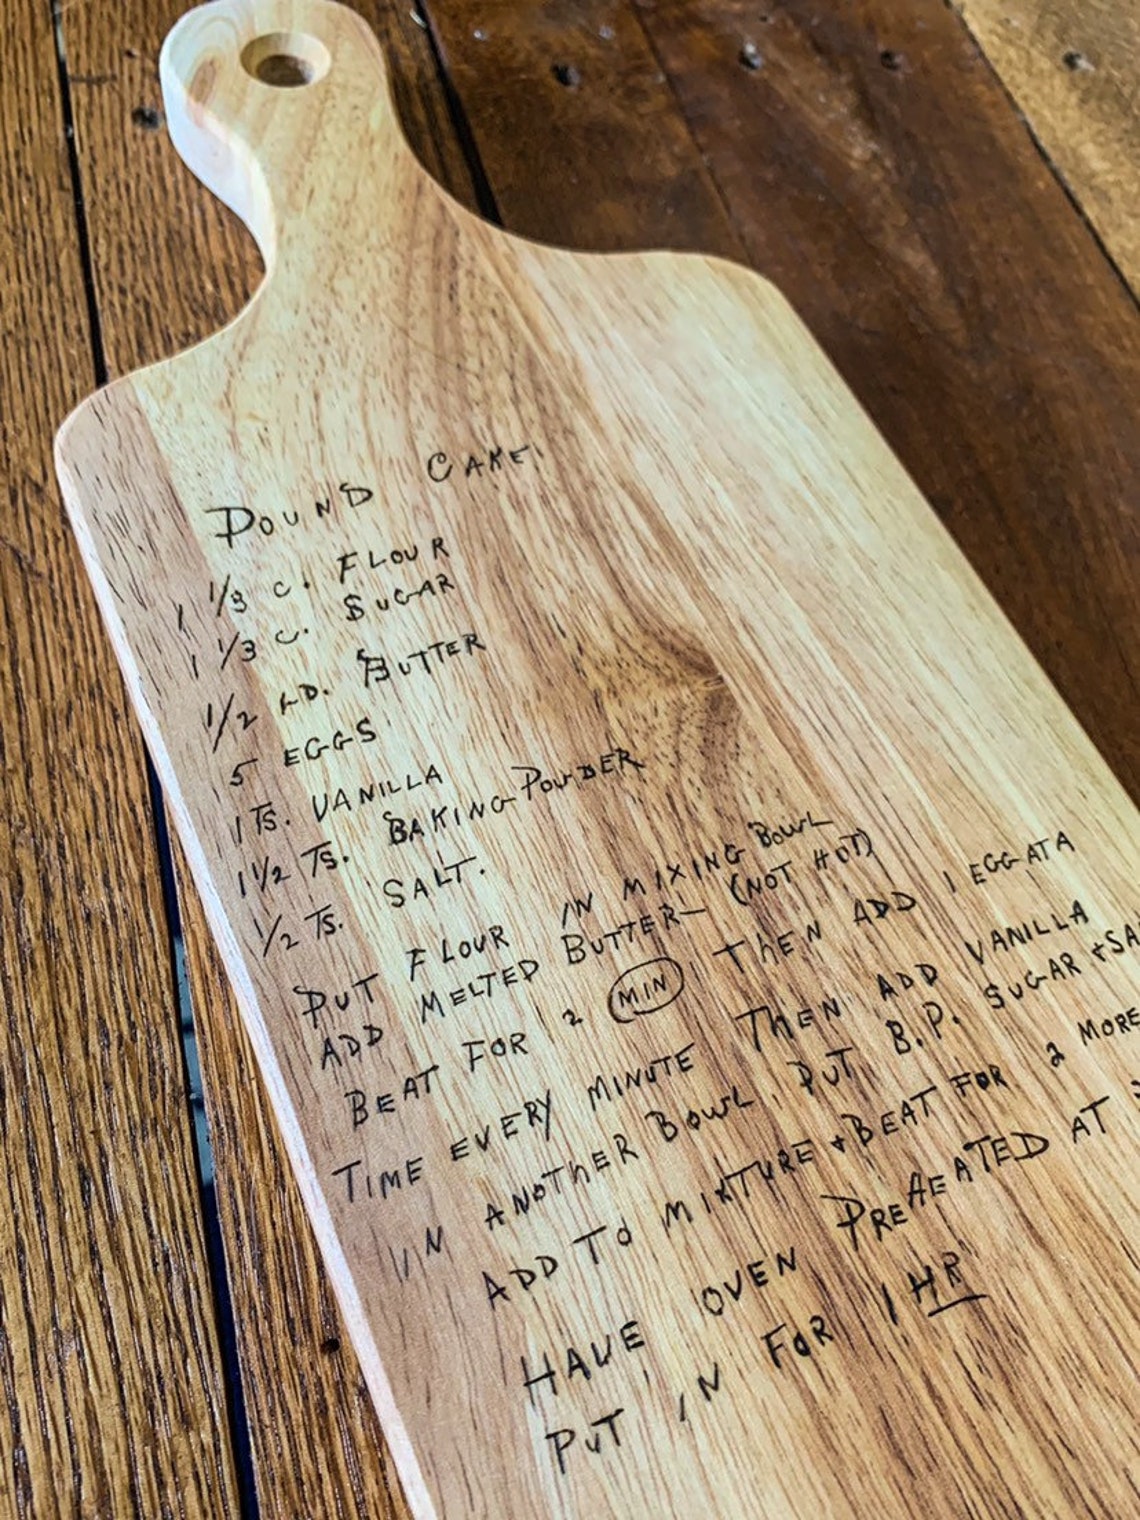 POUND CAKE.
1 1/3 C. FLOUR
1 1/3 C. SUGAR
1/2 LD. BUTTER
5 EGGS
1 TS. VANILLA
1 1/2 TS. BAKING POWDER
1/2 TS. SALT.
PUT FLOUR IN MIXING BOWL
ADD MELTED BUTTER - (NOT HOT)
BEAT FOR 2 MIN THEN ADD 1 EGG AT A
TIME EVERY MINUTE THEN ADD VANILLA
IN ANOTHER BOWL PUT B.P. SUGAR + SA
ADD TO MIXTURE + BEAT FOR 2 MORE
HAVE OVEN PREHEATED AT
PUT IN FOR 1 HR